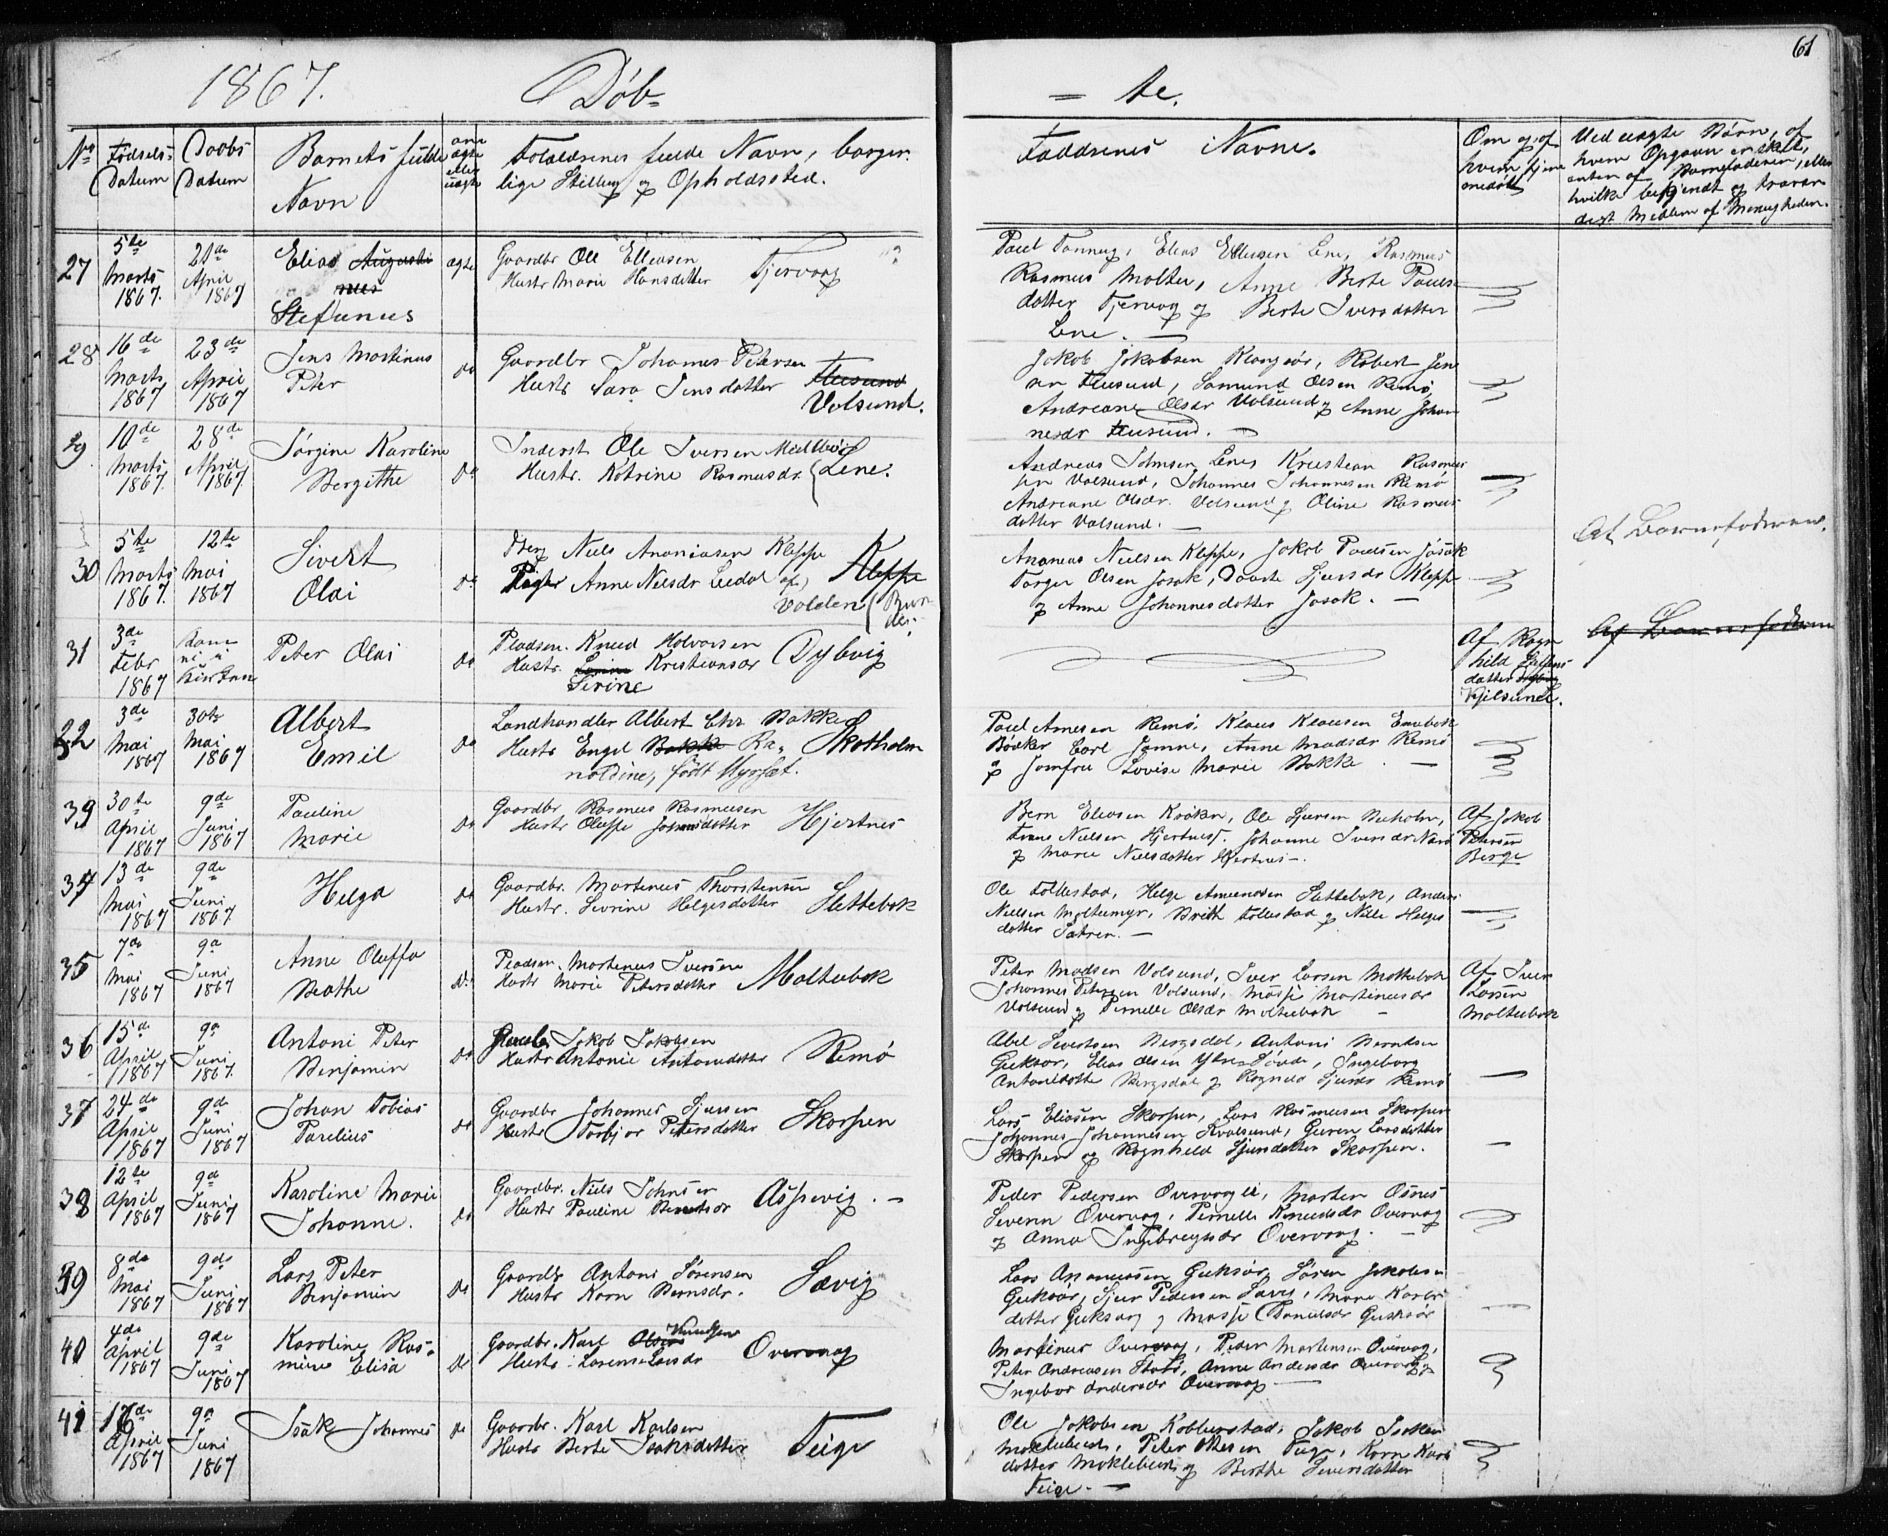 61
1867. Døb- = te.
No Fødsels Datum Daabs Datum Barnets fulde Navn om ægte eller uægte Forældrenes fulde Navn, borgerlige Stilling og Opholdssted.
Faddrenes Navne.
Om og af hvem hjemmedøbt
Ved uægte Børn, af hvem Opgaven er skeet, enten af Barnefaderen, eller hvilke bekjendt og troværdigt Medlem af Menigheden.
27 5te Marts 1867. 21de April 1867 Elias Augustinus Stefanus ægte
Gaardbr Ole Elleasen
Hustr Marie Hansdatter Tjervaag
Rasmus Molter, Anne Berte Pouls-
datter Tjervaag og Berte Iversdatter
Lene.
28 16de Marts 1867 23de April 1867 Jens Martinus Peter Do
Gaardbr Johannes Petersen
Hustr Sara Jensdatter Volsund.
Andreane Olsdr Volsund og Anne Johan-
nesdr
29 10de Marts 1867. 28de April 1867. Jørgine Karoline Bergithe Do
Inderst Ole Iversen
Hustr. Katrine Rasmusdr. Lene.
Andreas Johnsen Lenes Kristian Rasmus-
sen Volsund, Johannes Johannesen Remø
Andreane Olsdr. Volsund og Oline Rasmus-
datter Volsund.
30 5te Marts 1867. 12te Mai 1867 Sivert Olai Do
Niels Ananiasen Kleppe
Anne Nilsdr Kleppe
Volden
Ananias Nielsen Kleppe, Jakob Poulsen Jøsok
Torger Olsen Jøsok, Sjursdr Kleppe
og Anne Johannesdatter Jøsok.
Af Barnefaderen.
31 3de Febr 1867 Peter Olai Do
Pladsm. Knud Halvorsen
Hustr. Kristiansdr Dybvig
Serine
Af Ragnhild
datter
Kjelsund.
Af Barnefaderen
32 3de Mai 1867 30te Mai 1867 Albert Emil Do
Landhandler Albert Chr Bakke
Hustr Engel Bakke Ra-
noldine, født Myrset. Skotholm
Poul Arnesen Remø, Klaus Klausen
Carl Anne Madsdr Remø
og Jomfru Lovise Marie Bakke
33 30te April 1867 9de Juni 1867 Pauline Marie Do
Gaardbr Rasmus Rasmussen
Hustr Oluffe Hjertnes
Bern Eliasen Ole Sjursen
Nielsen Hjertnes. Johanne Iversdr
og Marie Nielsdatter Hjertnes.
Af Jakob Petersen Berge
34 13de Mai 1867 9de Juni 1867 Helga Do
Gaardbr. Martinus Thorstensen
Hustr. Severine Helgesdatter Slettebak
Ole Tollestad, Helge Amundsen Slettebak, Anders
Nielsen Moltemyr, Brith Tollestad og Nille Helges-
datter Sætren.
35 7de Mai 1867 9de Juni 1867 Anne Oluffa Beathe Do
Pladsm. Martinus Iversen
Hustr Marie Petersdatter Moltubak
Peter Madsen Volsund, Iver Larsen Moltubak
Johannes Petersen Volsund, Massi Martinusdr
Volsund og Pernelle Olsdr Moltubak
Af Iver Larsen Moltubak
36 15de April 1867 9de Juni 1867. Antoni Peter Benjamin Do
Jakob Jakobsen
Hustr Antonie Antonidatter Remø
Abel Sivertsen Bergsdal, Antoni Berntsen
Gurskør, Elias Olsen Ytre Søvde, Ingeborg
Bergsdal og Ragnild Sjursdr Remø
37 24de April 1867 9de Juni 1867 Johan Tobias Parelius Do
Gaardbr Johannes Sjursen
Hustr Torbjor Petersdatter Skorpen
Lars Eliasen Skorpen, Lars Rasmusen Skorpen
Johannes Johannesen Kvalsund, Guren Larsdatter
Skorpen og Ragnhild Sjursdatter Skorpen.
38 12te April 1867 9de Juni 1867 Karoline Marie Johanne. Do
Gaardbr. Niels Johnsen
Hustr Pauline Berntsdr Aspevig.
Peder Pedersen Overvaag, Morten Osnes
Severin Overvaag, Pernelle Knudsdr Overvaag
og Anna Ingebregtsdr Overvaag.
39 8de Mai 1867 9de Juni 1867 Lars Peter Benjamin Do
Gaardbr Antoni Sørensen
Hustr Karn Bernsdr. Sævig
Lars Ananiassen Gurskør, Søren Jakobsen
Gurskør, Sjur Pedersen Sævig, Marie
datter og Massi Danielsdr Gurskør
40 4de April 1867 9de Juni 1867 Karoline Rasmine Elisa Do
Gaardbr. Karl Knudsen
Hustr. Lorense Larsdr Overvaag
Martinus Overvaag, Peder Martensen Overvaag,
Peter Andreasen Anne Andersdr Overvaag og
Ingebor Andersdr Overvaag
41 April 1867 9de Juni 1867 Isak Johannes Do
Gaardbr. Karl Karlsen
Hustr Berte Isaksdatter Teige
Ole Jakobsen Kobberstad, Jakob Isaksen
Myklebust, Peter Olesen Teige, Karn Karls-
datter Myklebust og Berthe Siversdatter
Teige.